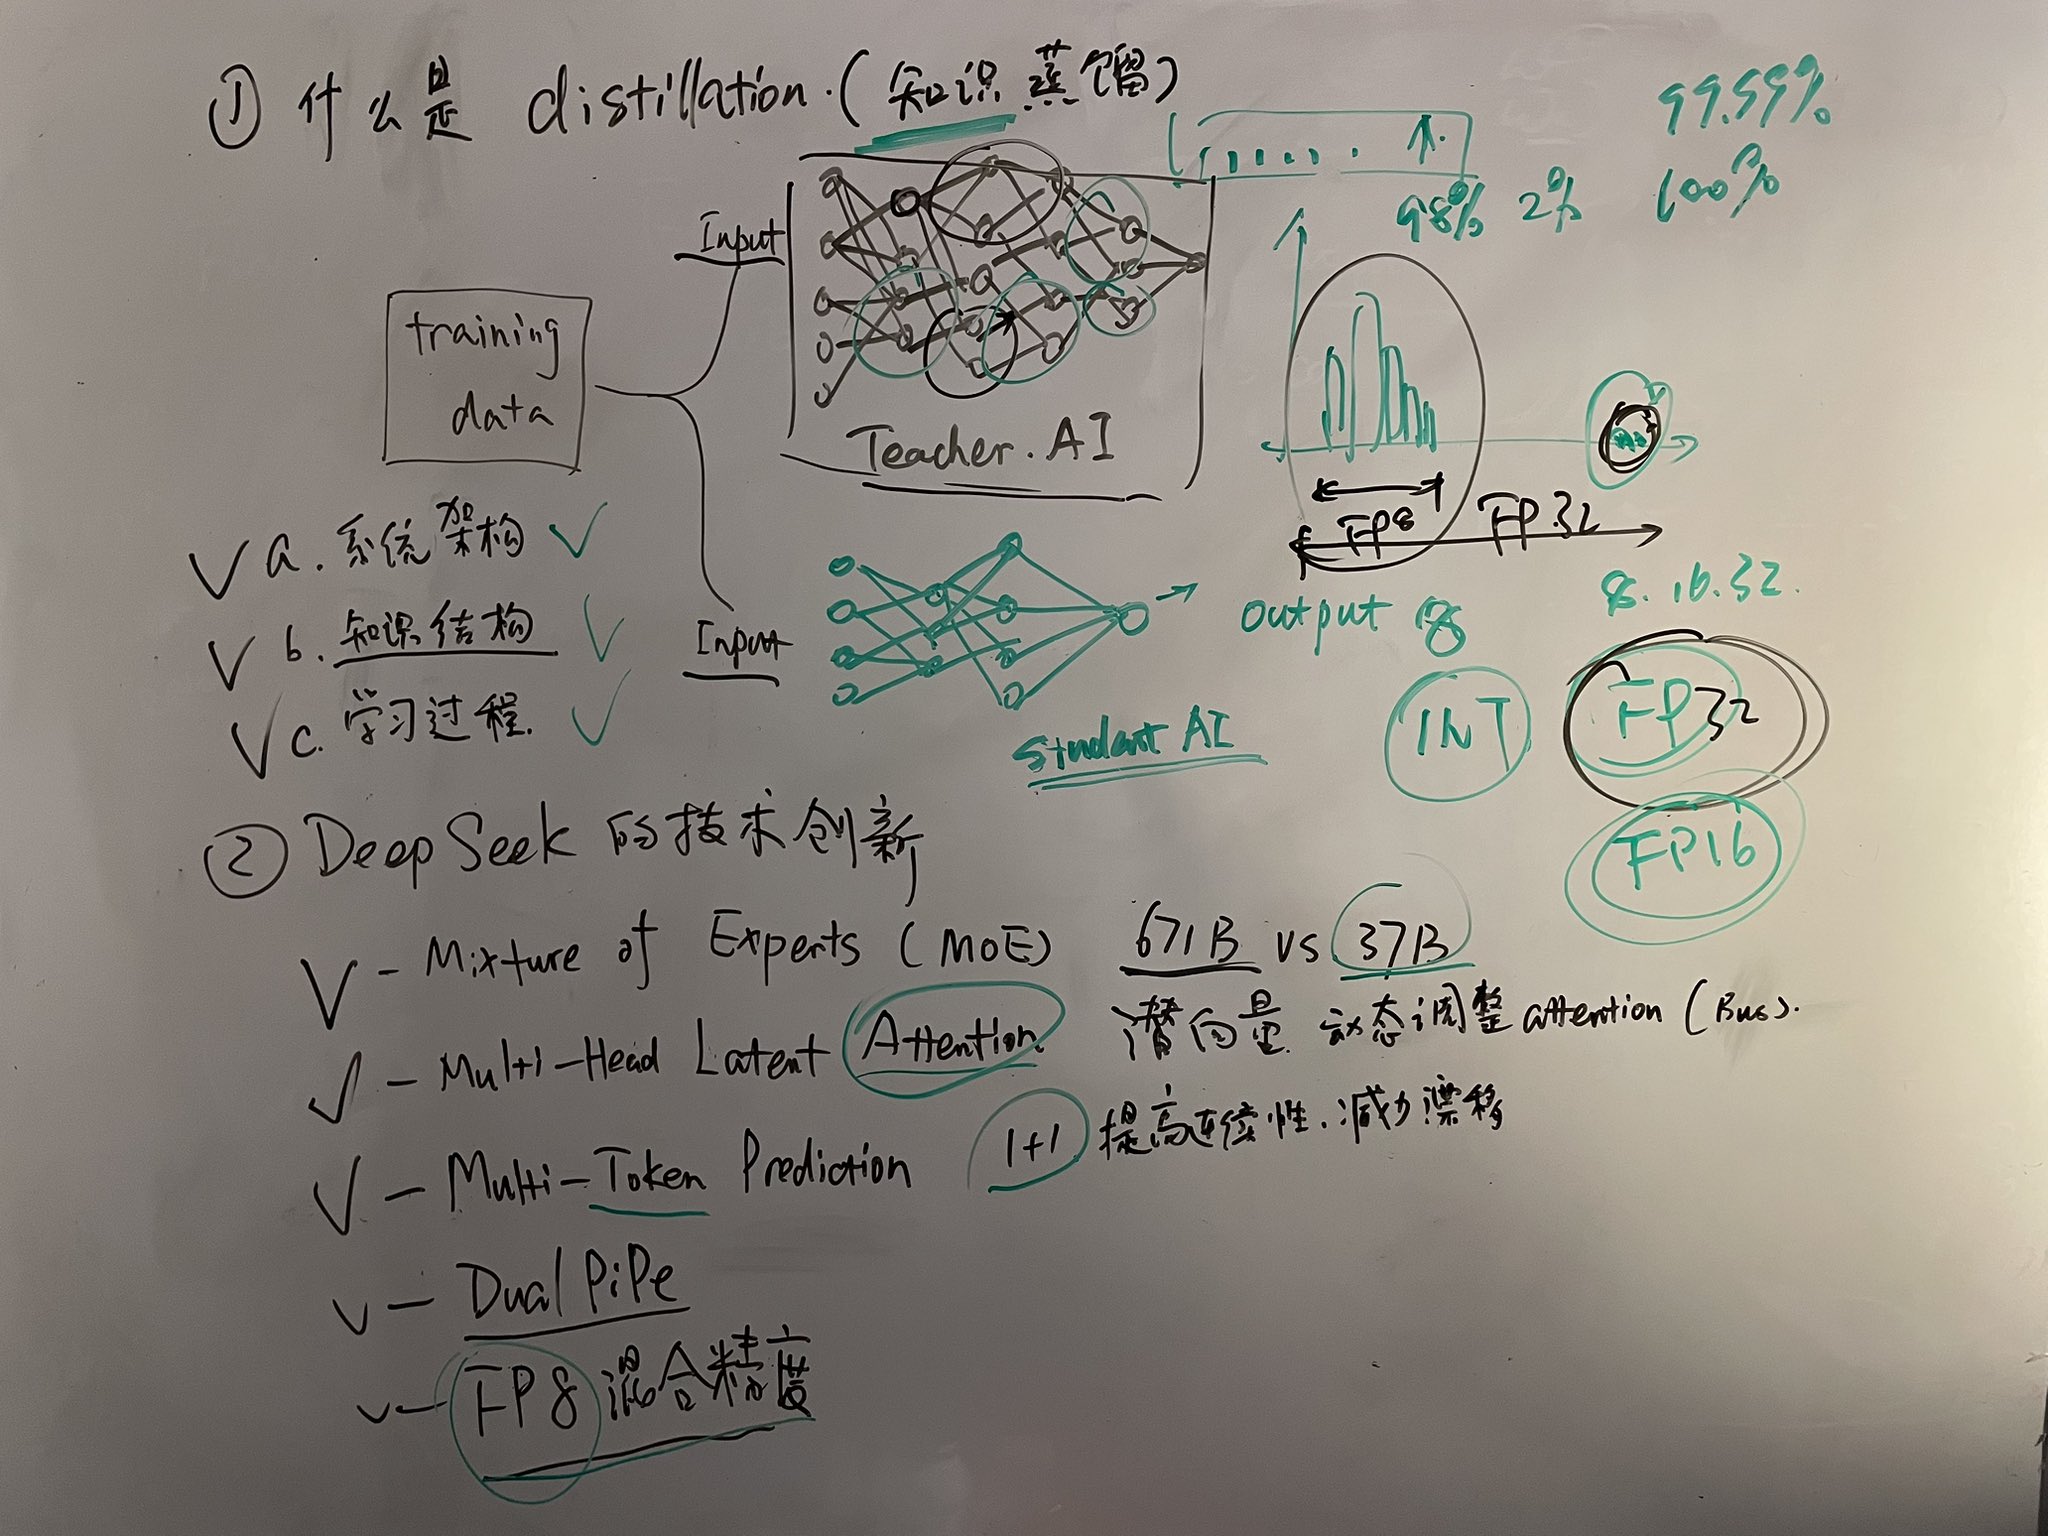 ① 什么是 distillation.(知识蒸馏)
99.99%
98% 2% 100%
Input
training
data
Teacher.AI
FP8 FP32
✓ a. 系统架构 ✓
✓ b. 知识结构 ✓
✓ c. 学习过程. ✓
Input
output 8
8. 16. 32.
INT FP32
Student AI
FP16
② DeepSeek 的技术创新
✓ - Mixture of Experts (MoE) 671B vs 37B
✓ - Multi-Head Latent Attention. 潜向量 动态调整 attention (Bus).
✓ - Multi-Token Prediction 1+1 提高连续性.减少漂移
✓ - Dual PiPe
✓ - FP8 混合精度